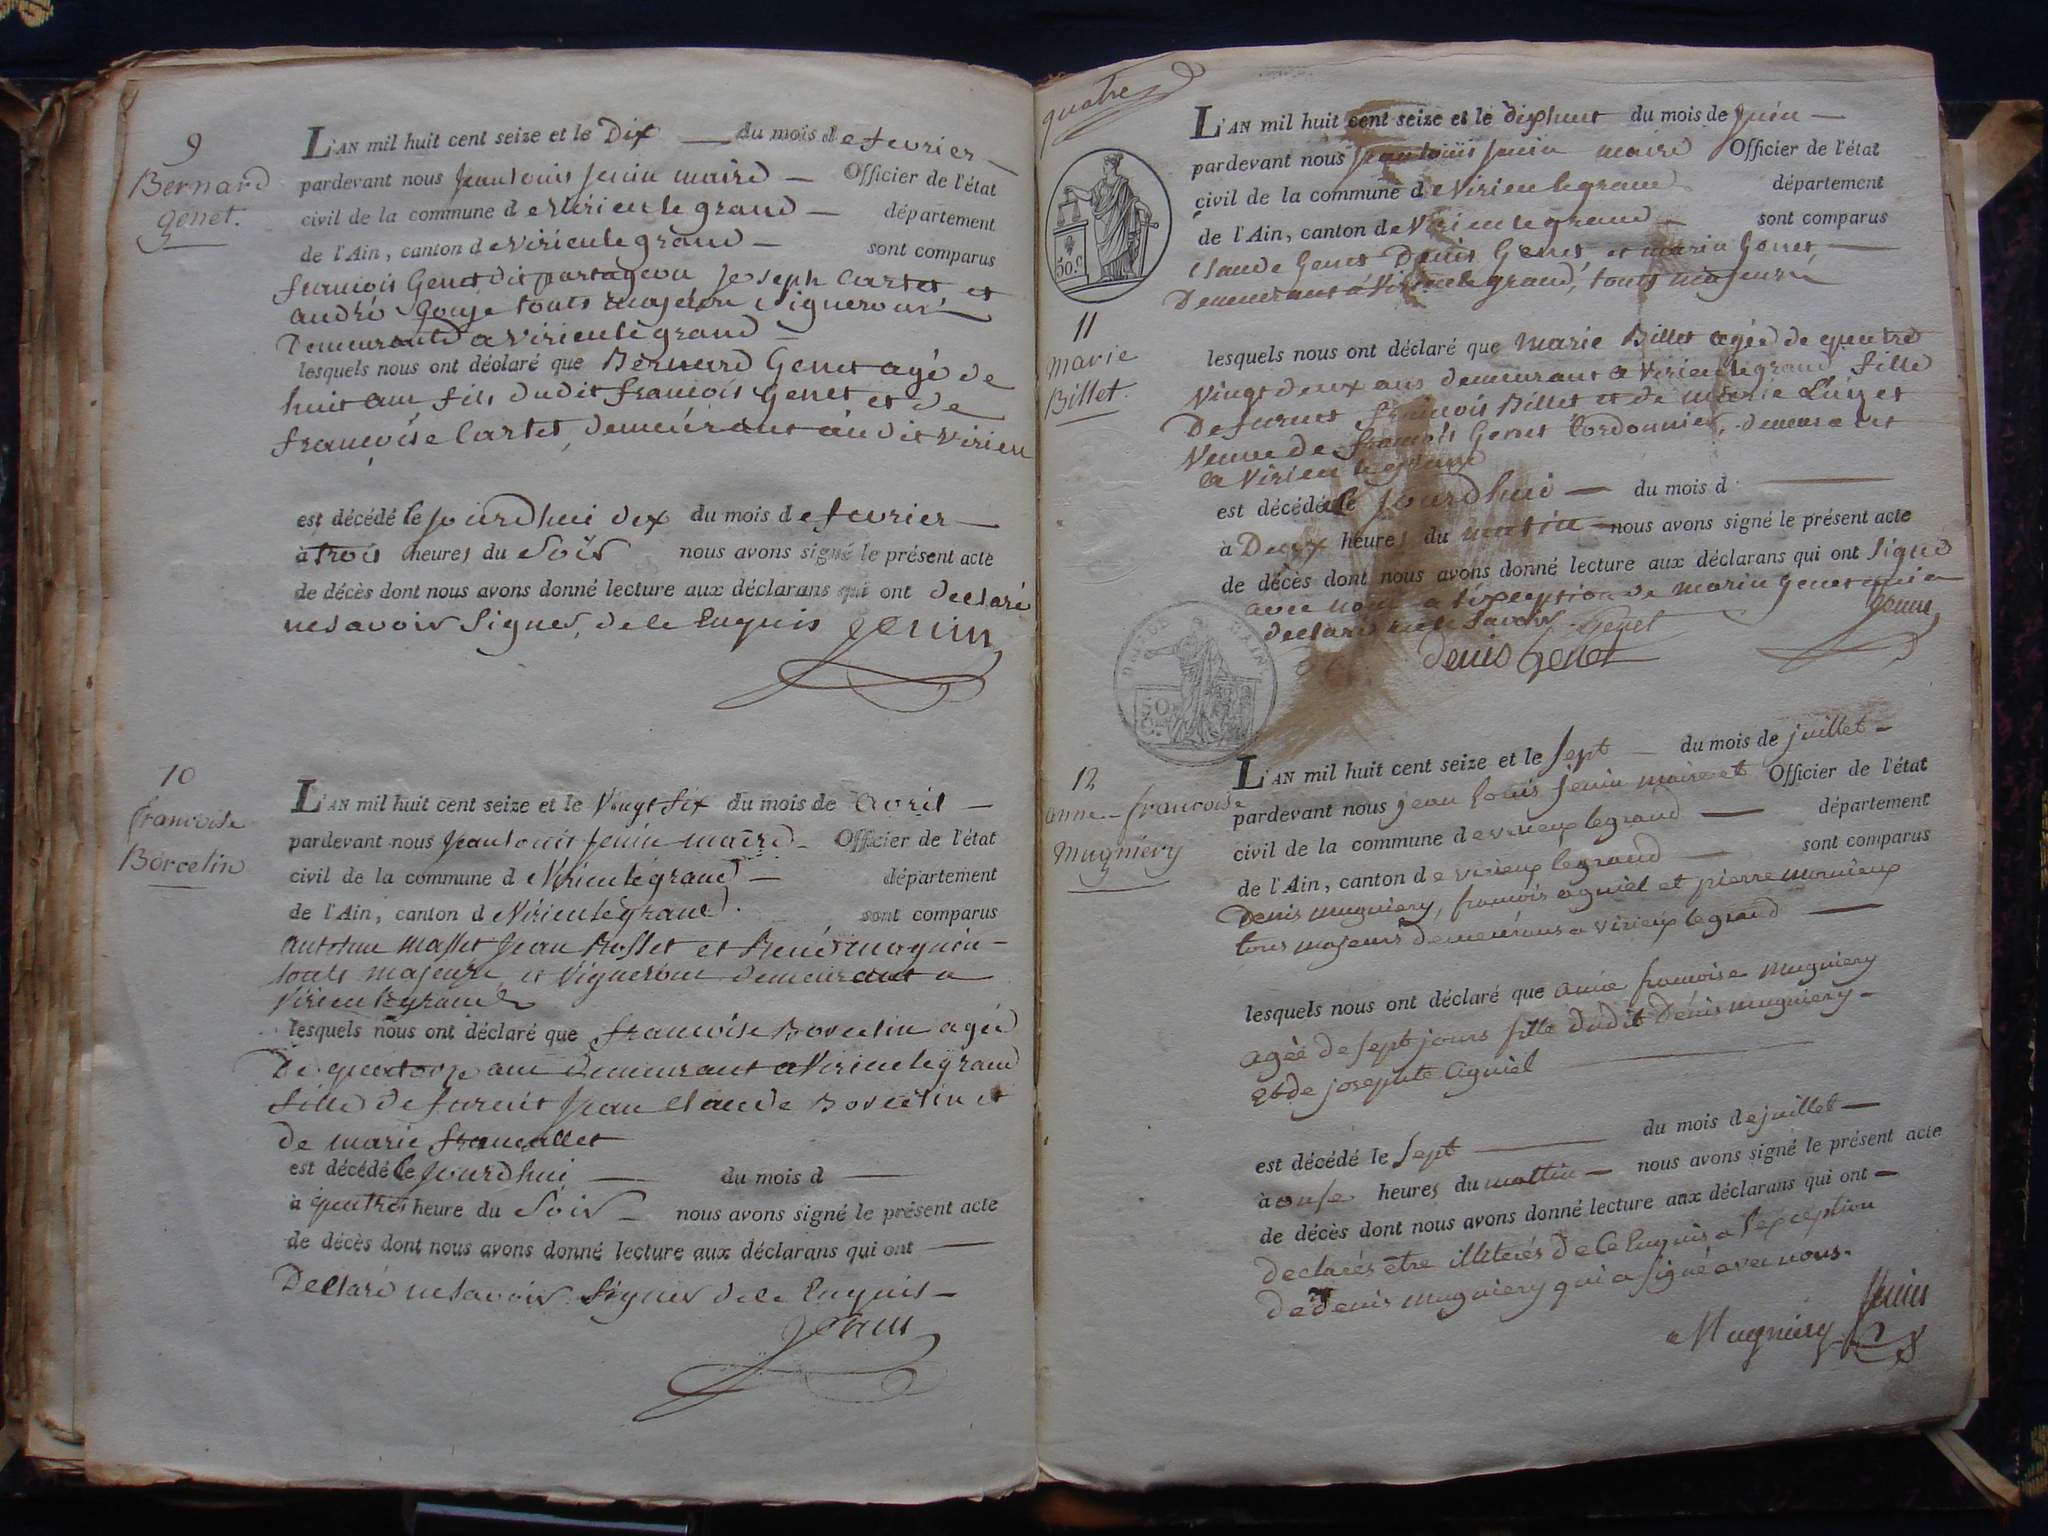 9
Bernard
genet.
L'AN mil huit cent seize et le Dix du mois de fevrier
pardevant nous jean louis jenin maire Officier de l'état
civil de la commune de Virieu le grand département
de l'Ain, canton de virieu le grand sont comparus
francois Genet dit partageou joseph Cartet et
andré Gouje touts majeurs vignerons
Demeurants a virieu le grand
lesquels nous ont déclaré que Bernard Genet agé de
huit ans fils dudit francois Genet et de
francoise Cartet, demeurant audit virieu
est décédé le jourdhui dix du mois de fevrier
à trois heures du Soir nous avons signé le présent acte
de décès dont nous avons donné lecture aux déclarans qui ont declaré
ne savoir signer, de ce Enquis jenin
10
francoise
Borcelin
L'AN mil huit cent seize et le Vingt six du mois de avril
pardevant nous jean louis jenin maire Officier de l'état
civil de la commune d Virieu le grand département
de l'Ain, canton d Virieu le grand. sont comparus
antoine Masset jean Rosset et René magnin
touts majeurs et Vignerons demeurant a
Virieu le grand
lesquels nous ont déclaré que francoise Borcelin agée
De quatorze ans demeurant a Virieu le grand
fille de jean Claude Borcelin et
de marie
est décédé le jourdhui du mois d
à quatre heure du Soir nous avons signé le présent acte
de décès dont nous avons donné lecture aux déclarans qui ont
Declaré ne savoir signer de ce Enquis
jenin
quatre
50.c
L'AN mil huit cent seize et le dixhuit du mois de juin
pardevant nous jean louis jenin maire Officier de l'état
civil de la commune de Virieu le grand département
de l'Ain, canton de Virieu le grand sont comparus
Claude Genet Denis Genet, et marin Genet
Demeurant a Virieu le grand, touts majeurs
11
Marie
Billet.
lesquels nous ont déclaré que Marie Billet agée de quatre
vingt deux ans demeurant a Virieu le grand fille
De francois Billet et de
Veuve de francois Genet Cordonnier, demeurant
a Virieu le grand
est décédée le jourdhui du mois d
à Deux heures du matin nous avons signé le présent acte
de décès dont nous avons donné lecture aux déclarans qui ont signé
avec nous a l'exception de marin Genet qui a
declaré ne le savoir. Genet jenin
denis Genet
50
C.
12
anne francoise
Mugniery
L'AN mil huit cent seize et le sept du mois de juillet
pardevant nous jean louis jenin maire et Officier de l'état
civil de la commune de virieux le grand département
de l'Ain, canton de virieux le grand sont comparus
Denis mugniery, francois aguiel et pierre monieux
tous majeurs demeurans a virieux le grand
lesquels nous ont déclaré que anne francoise mugniery
agée de sept jours fille dudit Denis mugniery
et de josephte aguiel
est décédé le sept du mois de juillet
à onse heures du mattin nous avons signé le présent acte
de décès dont nous avons donné lecture aux déclarans qui ont
declarés etre illiterés de ce Enquis a l'exception
de denis mugniery qui a signé avec nous.
Mugniery jenin